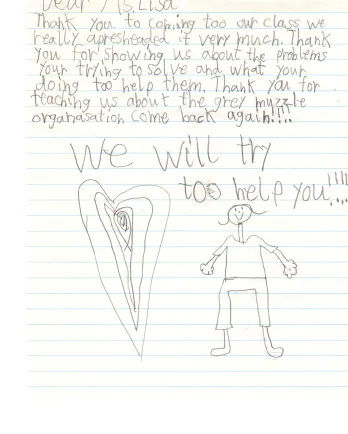 Dear Ms. Lisa
Thank you to coming too our class we
really apreshteaded it very much. Thank
you for showing us about the problems
your trying to solve and what your
doing too help them. Thank you for
teaching us about the grey muzzle
organasation come back again!!!!
We will try
too help you!!!!